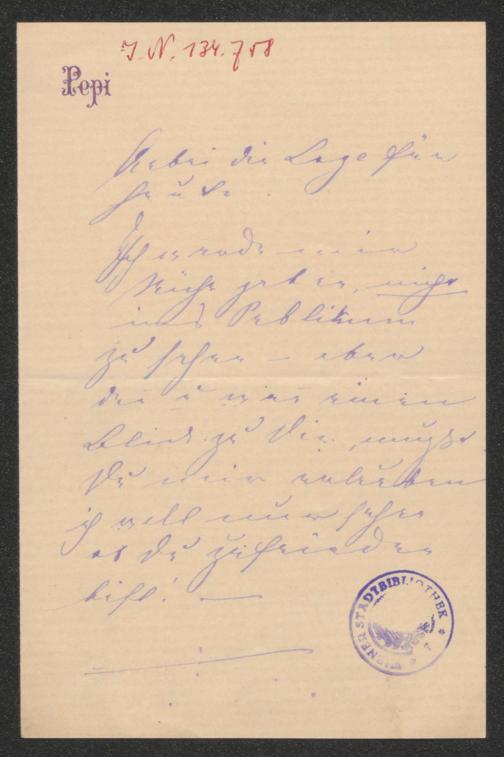 J. N. 134.758
Pepi
Anbei die Loge für
heute.
Ich werde mir
Mühe geben, nicht
ins Publikum
zu sehen – aber
der u wer einen
Blick zu Dir, mußt
Du mir erlauben
ich will nur sehen
ob Du zufrieden
bist! —
WIENER STADTBIBLIOTHEK